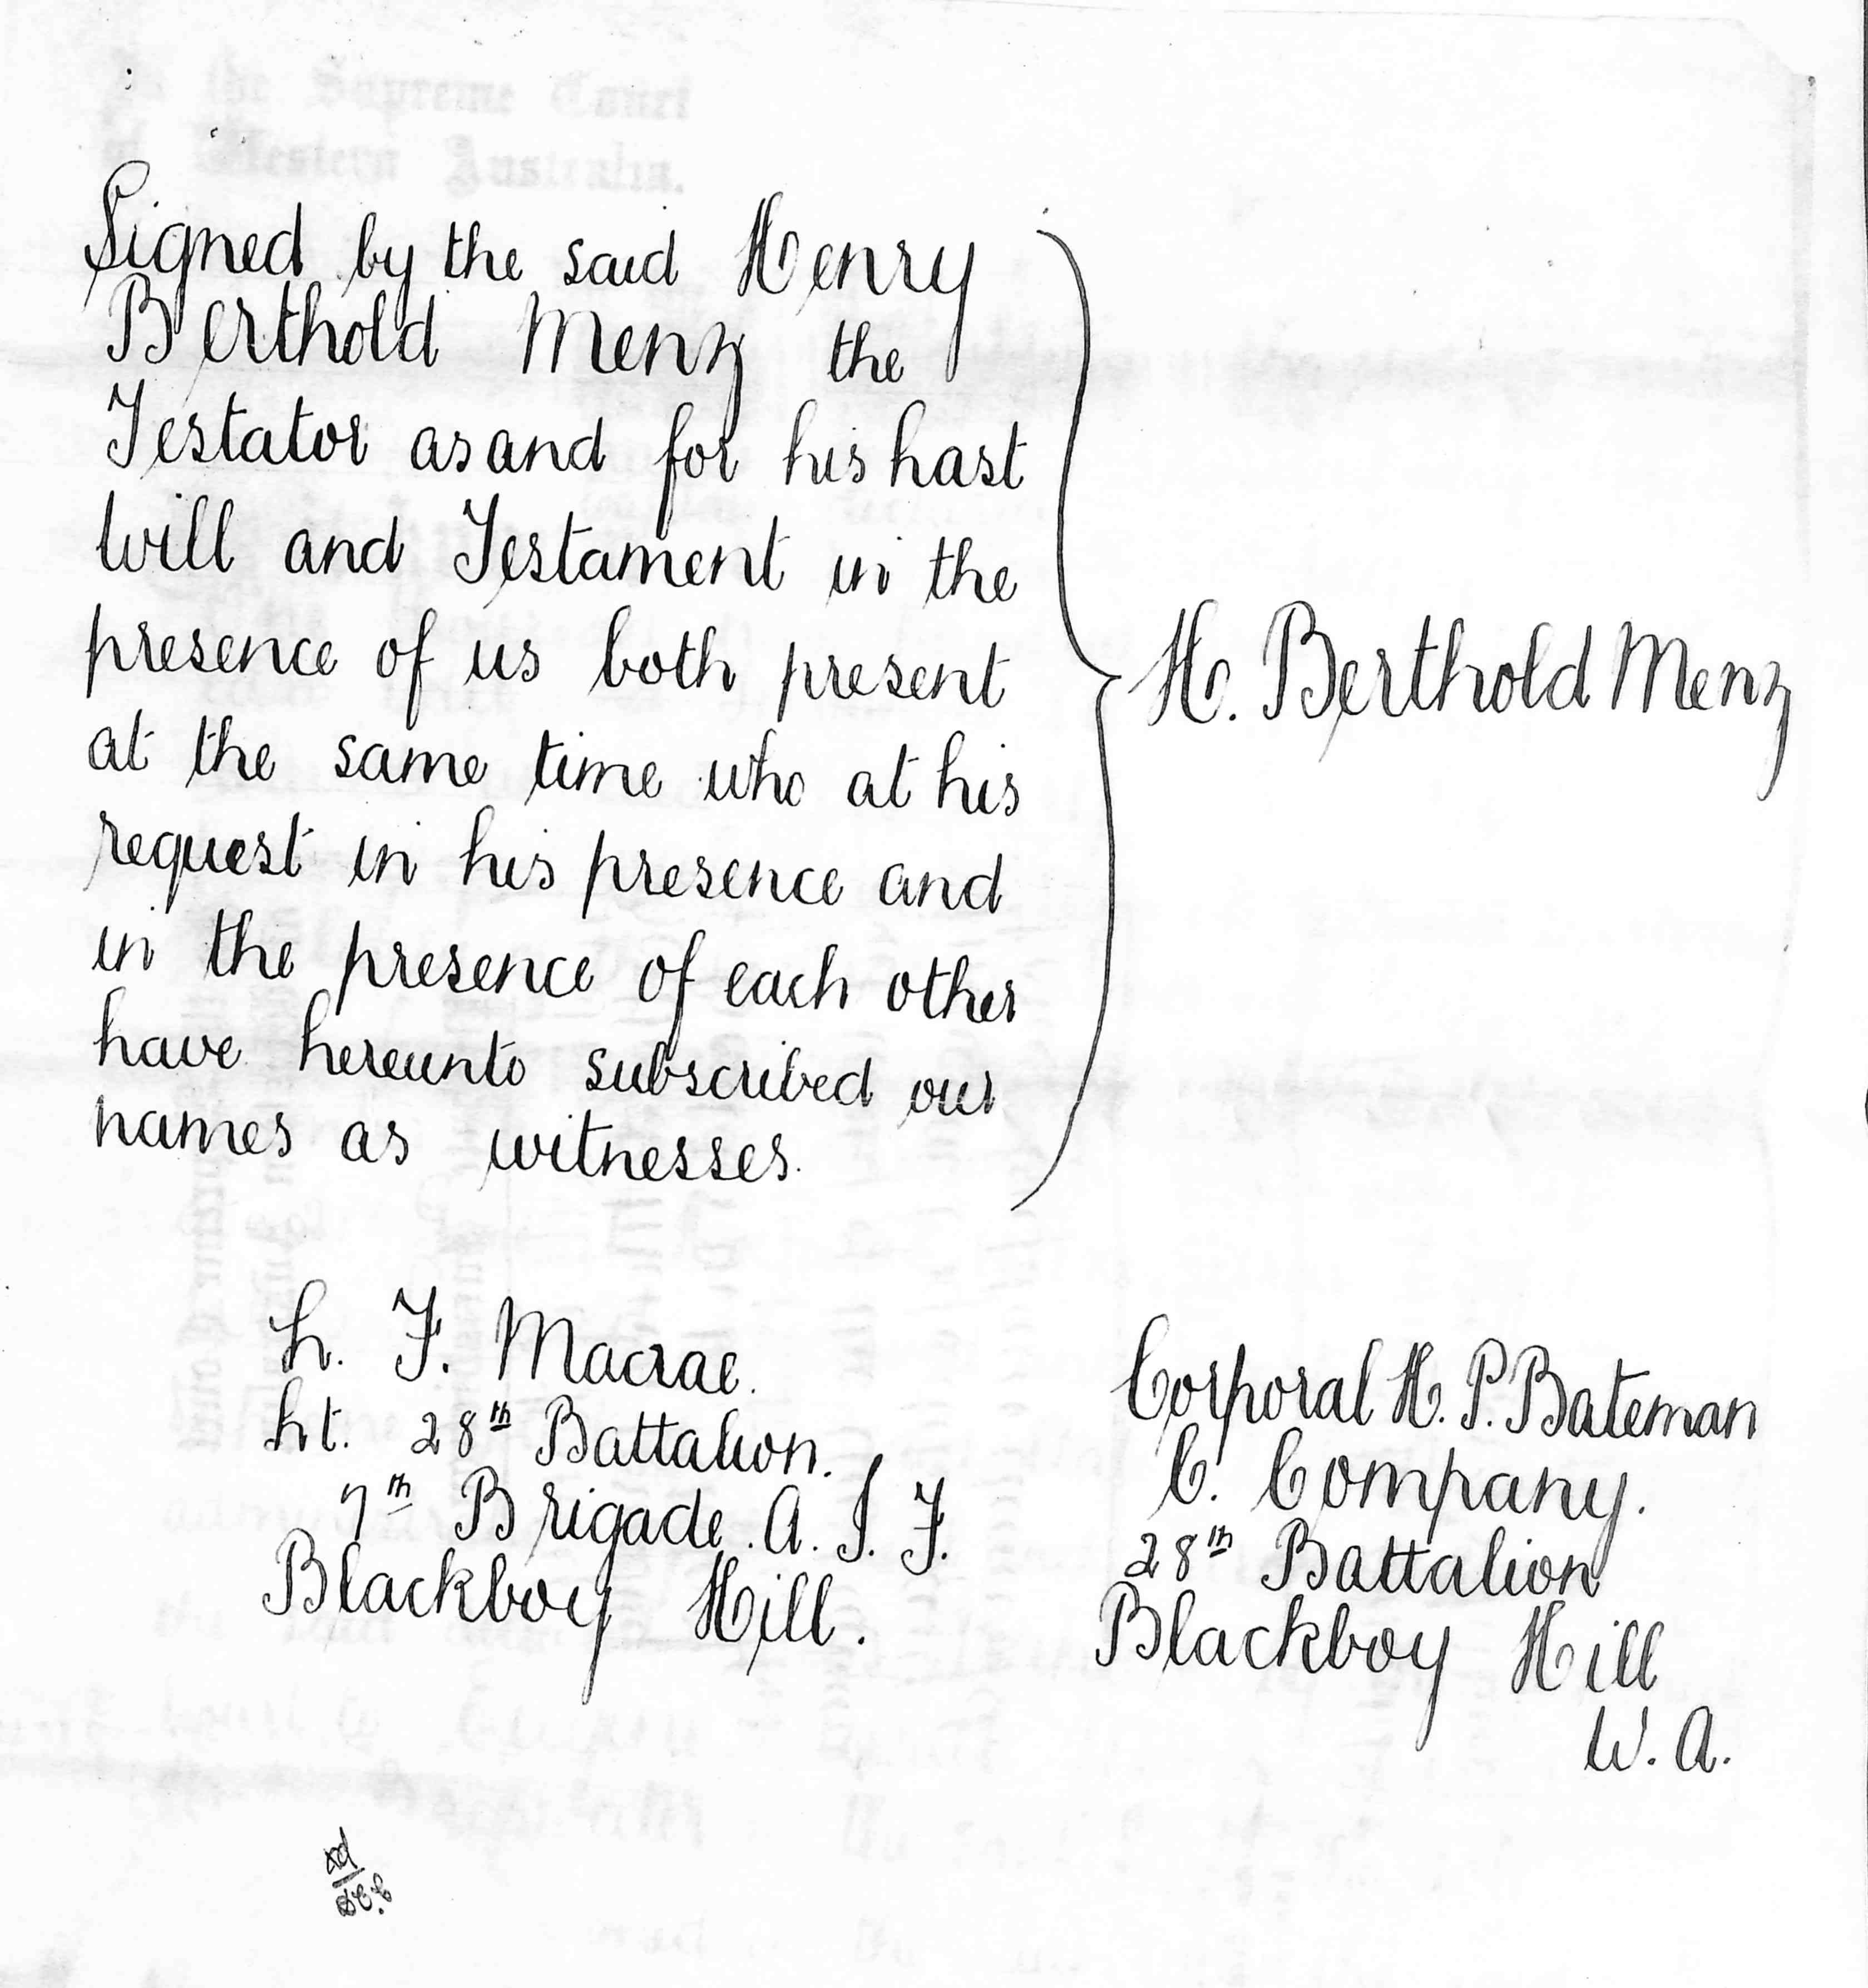 Signed by the said Henry
Berthold Menz the
Testator as and for his Last
Will and Testament in the
presence of us both present
at the same time who at his
request in his presence and
in the presence of each other
have hereunto subscribed our
names as witnesses.
H. Berthold Menz
L. F. Macrae.
Lt. 28th Battalion.
7th Brigade. A. I. F.
Blackboy Hill.
Corporal H. P. Bateman
C. Company.
28th Battalion
Blackboy Hill
W. A.